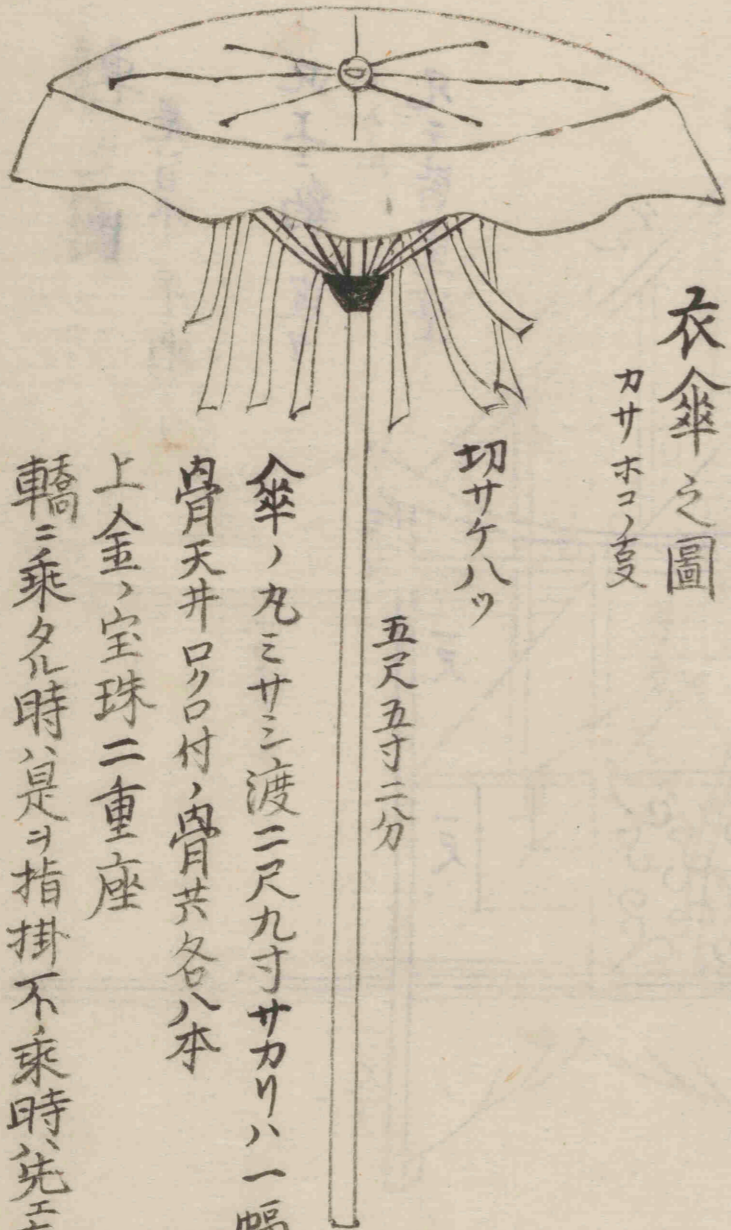 衣傘之圖
カサホコノ事
切サケ八ツ
五尺五寸二分
傘ノ丸ミサシ渡二尺九寸サカリハ一幅
骨天井ロクロ付ノ骨共各八本
上金ノ宝珠二重座
轎ニ乗タル時ハ是ヲ指掛不乗時ハ先エ